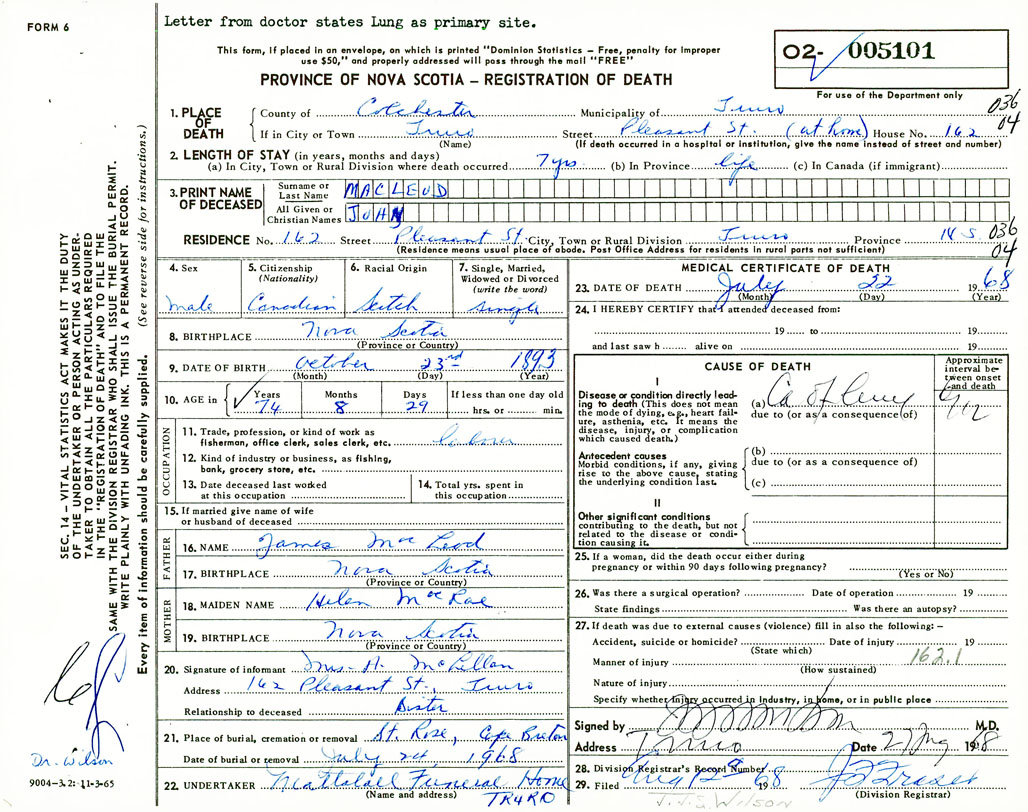 FORM 6
Letter from doctor states Lung as primary site.
This form, if placed in an envelope, on which is printed "Dominion Statistics – Free, penalty for improper
use $50," and properly addressed will pass through the mail "FREE"
PROVINCE OF NOVA SCOTIA – REGISTRATION OF DEATH
O2- 005101
For use of the Department only
036
04
1. PLACE OF DEATH
County of Colchester Municipality of Truro
If in City or Town Truro Street Pleasant St. (at home) House No. 162
(Name) (If death occurred in a hospital or institution, give the name instead of street and number)
2. LENGTH OF STAY (in years, months and days)
(a) In City, Town or Rural Division where death occurred 7 yrs. (b) In Province life (c) In Canada (if immigrant)
3. PRINT NAME OF DECEASED
Surname or Last Name MACLEOD
All Given or Christian Names JOHN
RESIDENCE No. 162 Street Pleasant St. City, Town or Rural Division Truro Province N S 036
(Residence means usual place of abode. Post Office Address for residents in rural parts not sufficient) 04
4. Sex
male
5. Citizenship
(Nationality)
Canadian
6. Racial Origin
Scotch
7. Single, Married,
Widowed or Divorced
(write the word)
single
8. BIRTHPLACE Nova Scotia
(Province or Country)
9. DATE OF BIRTH October 23rd 1893
(Month) (Day) (Year)
10. AGE in Years Months Days If less than one day old
74 8 29 hrs. or min.
OCCUPATION
11. Trade, profession, or kind of work as
fisherman, office clerk, sales clerk, etc. laborer
12. Kind of industry or business, as fishing,
bank, grocery store, etc.
13. Date deceased last worked
at this occupation
14. Total yrs. spent in
this occupation
15. If married give name of wife
or husband of deceased
FATHER
16. NAME James MacLeod
17. BIRTHPLACE Nova Scotia
(Province or Country)
MOTHER
18. MAIDEN NAME Helen MacRae
19. BIRTHPLACE Nova Scotia
(Province or Country)
20. Signature of informant Mrs. H. McLellan
Address 162 Pleasant St., Truro
Relationship to deceased Sister
21. Place of burial, cremation or removal St. Rose, Cape Breton
Date of burial or removal July 24, 1968
22. UNDERTAKER Funeral Home
(Name and address) TRURO
MEDICAL CERTIFICATE OF DEATH
23. DATE OF DEATH July 22 1968
(Month) (Day) (Year)
24. I HEREBY CERTIFY that I attended deceased from:
19 to 19
and last saw h alive on 19
CAUSE OF DEATH
Approximate
interval be-
tween onset
and death
I
Disease or condition directly lead-
ing to death (This does not mean
the mode of dying, e.g., heart fail-
ure, asthenia, etc. It means the
disease, injury, or complication
which caused death.)
(a) Ca of Lung
due to (or as a consequence of)
Antecedent causes
Morbid conditions, if any, giving
rise to the above cause, stating
the underlying condition last.
(b)
due to (or as a consequence of)
(c)
II
Other significant conditions
contributing to the death, but not
related to the disease or condi-
tion causing it.
25. If a woman, did the death occur either during
pregnancy or within 90 days following pregnancy?
(Yes or No)
26. Was there a surgical operation? Date of operation 19
State findings Was there an autopsy?
27. If death was due to external causes (violence) fill in also the following: –
Accident, suicide or homicide? Date of injury 19
(State which) 162.1
Manner of injury
(How sustained)
Nature of injury
Specify whether injury occurred in industry, in home, or in public place
Signed by M.D.
Address Truro Date 2 Aug 1968
28. Division Registrar's Record Number
29. Filed Aug 12 1968
(Division Registrar)
J. J. G. WILSON
SEC. 14 – VITAL STATISTICS ACT MAKES IT THE DUTY
OF THE UNDERTAKER OR PERSON ACTING AS UNDER-
TAKER TO OBTAIN ALL THE PARTICULARS REQUIRED
IN THE "REGISTRATION OF DEATH" AND TO FILE THE
SAME WITH THE DIVISION REGISTRAR WHO SHALL ISSUE THE BURIAL PERMIT.
WRITE PLAINLY WITH UNFADING INK. THIS IS A PERMANENT RECORD.
Every item of information should be carefully supplied. (See reverse side for instructions.)
Dr. Wilson
9004-3.2: 11-3-65